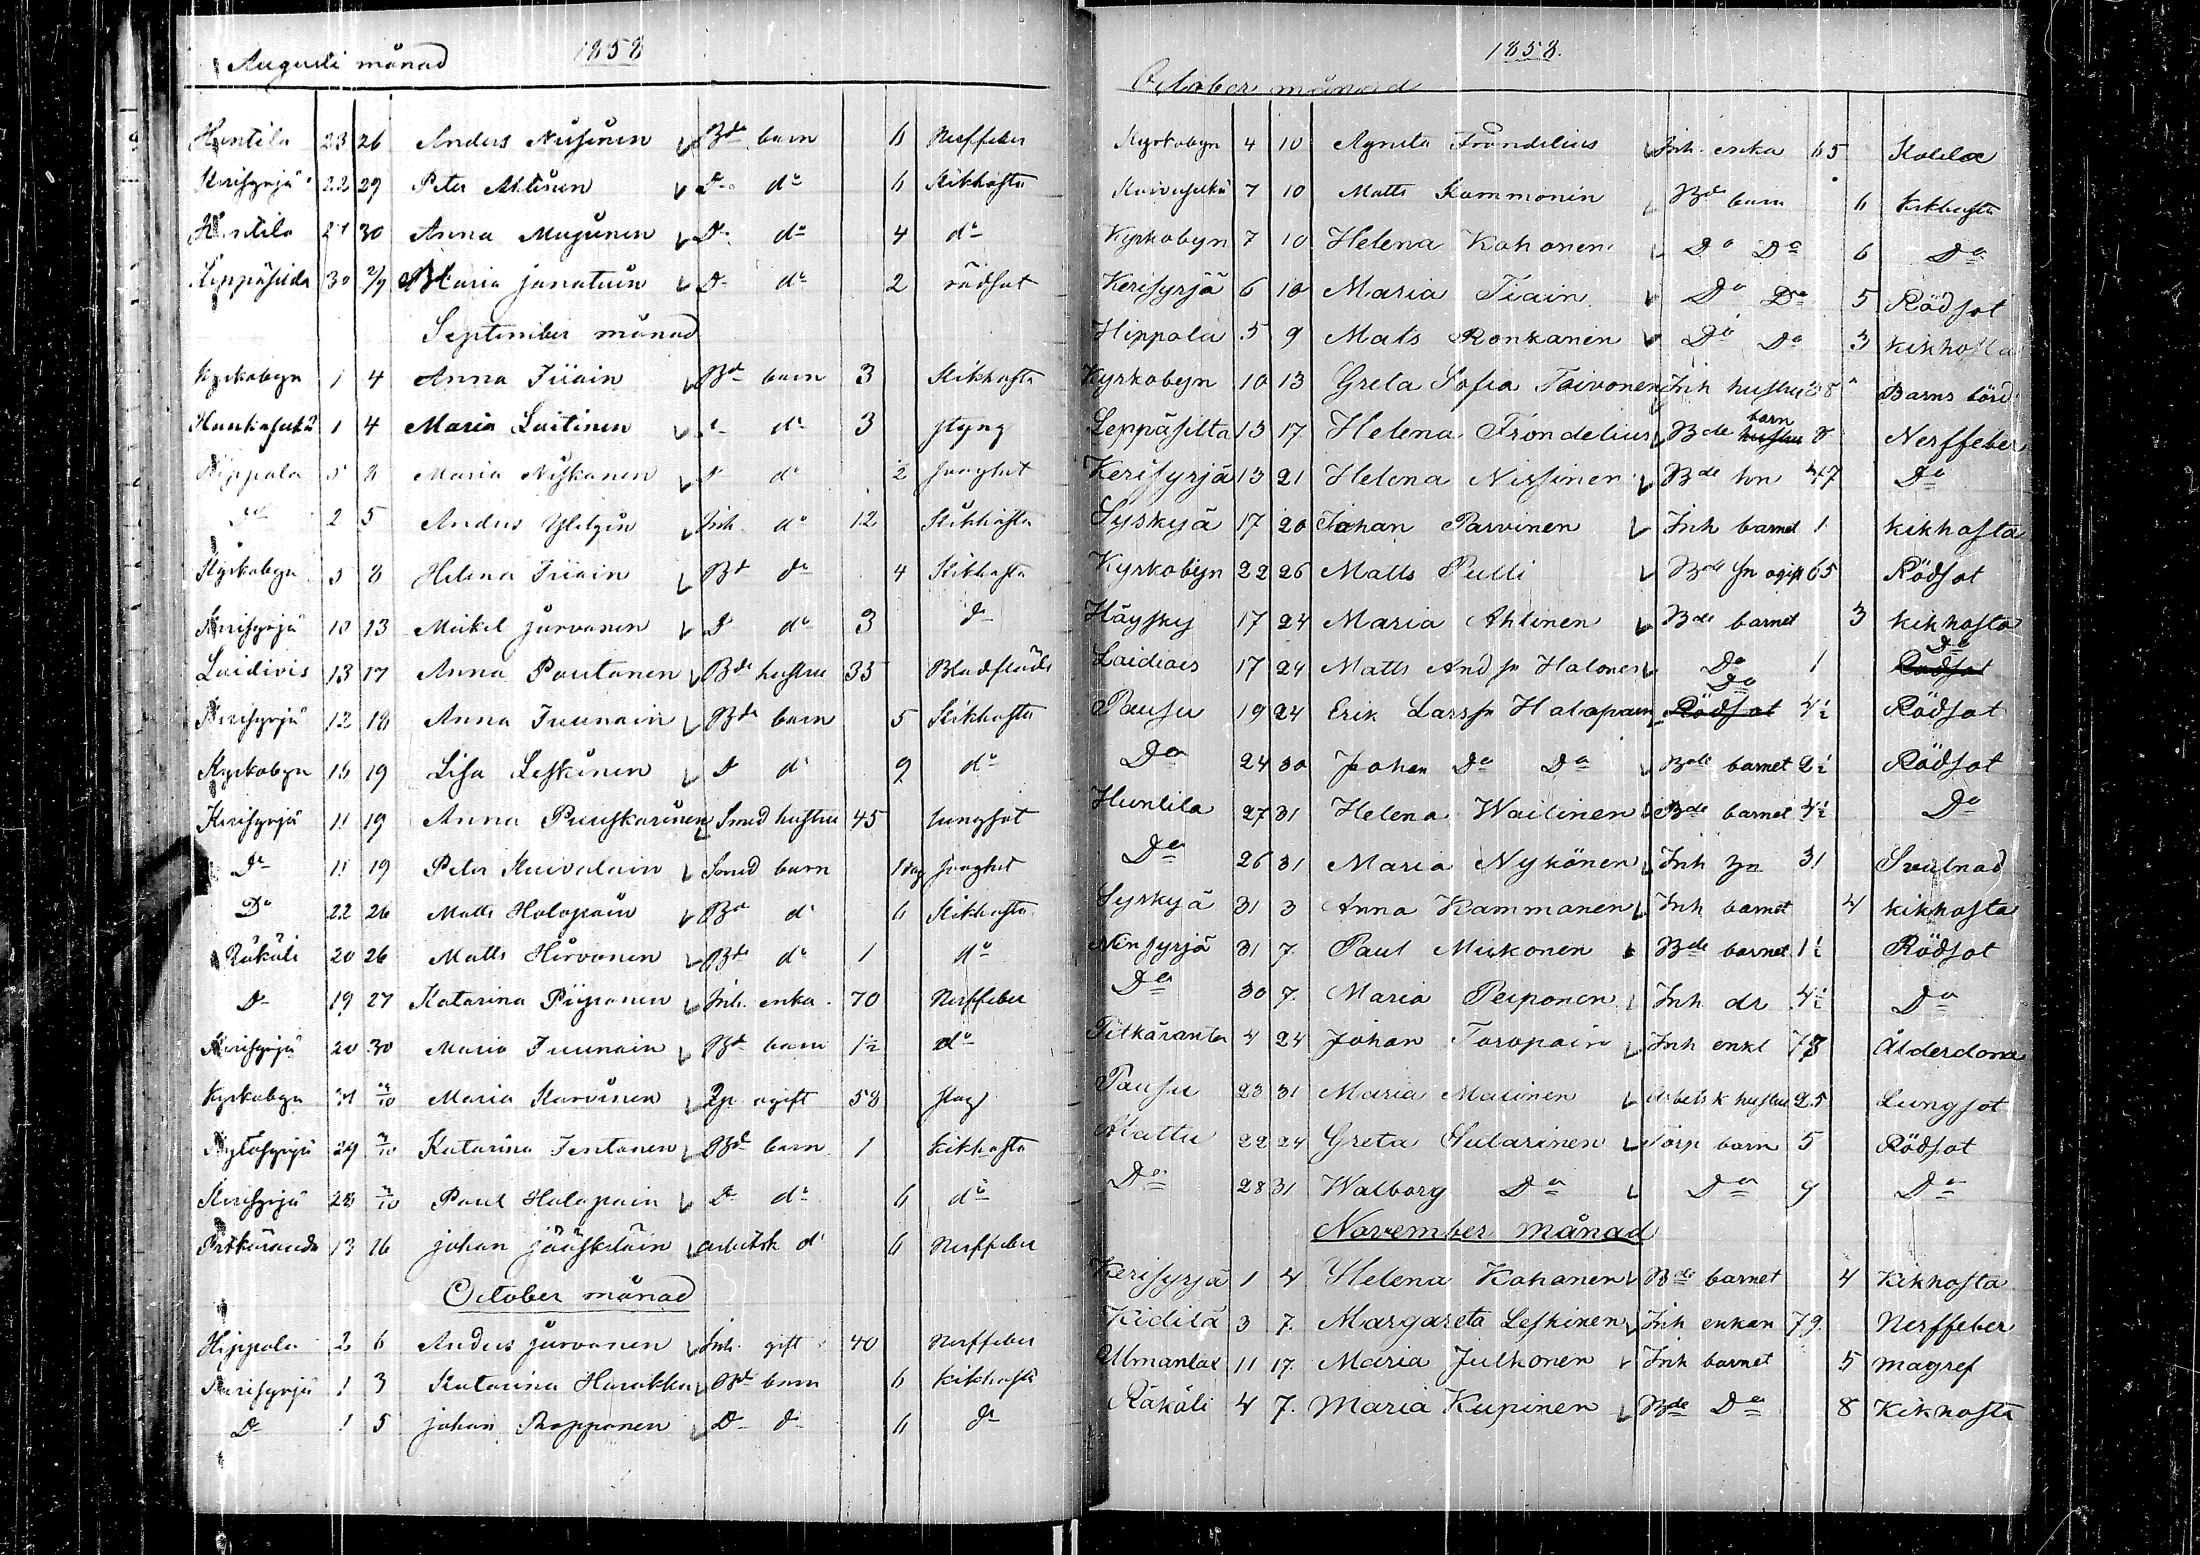 1858
Augusti månad
Huntila 23 26 Anders Nissinen Bde barn 6 Nerffeber
Kerisyrjä 22 29 Peter Ahtinen Do do 6 Kikhosta
Huntila 27 30 Anna Mujunen Do do 4 do
Leppäsilda 30 2/9 Maria Janatuin Do do 2 rödsot
September månad
Kyrkobyn 1 4 Anna Tiiain Bde barn 3 Kikhosta
1 4 Maria Laitinen do 3 styng
Hippola 5 8 Maria Niskanen do 2
Do 2 5 Anders Inh. do 12 Kikhosta
Kyrkobyn 5 8 Helena Tiiain Bd do 4 Kikhosta
Kerisyrjä 10 13 Mickel Jurvanen D do 3 do
Laidiois 13 17 Anna Poutanen Bde hustru 35 Blodflöde
Kerisyrjä 12 18 Anna Juunain Bde barn 5 Kikhosta
Kyrkobyn 15 19 Lisa Leskinen D do 9 do
Kerisyrjä 11 19 Anna Puuskarinen Smed hustru 45 lungsot
Do 11 19 Peter Kuivalain Smed barn 1 dag
Do 22 26 Matts Holopain Bd do 6 Kikhosta
Räkäli 20 26 Matts Hirvonen Bde do 1 do
Do 19 27 Katarina Piiponen Inh. enka 70 Nerffeber
Kerisyrjä 20 30 Maria Juunain Bd barn 1½ do
Kyrkobyn Maria Karvinen ogift 58 slag
29 Katarina Bd barn 1 kikhosta
Kerisyrjä 28 Paul Holopain D do 6 do
Pitkäranda 13 16 Johan Jääskeläin arbetsk d 6 Nerffeber
October månad
Hippola 2 6 Anders Jurvanen Inh. gift 40 Nerffeber
Kerisyrjä 1 3 Katarina Harakka Bde barn 6 kikhosta
Do 1 5 Johan Ropponen Do do 6 do
1858.
October månad
Kyrkobyn 4 10 Agneta Frondelius Inh. enka 65
7 10 Matts Kammonen Bde barn 6 Kikhosta
Kyrkobyn 7 10 Helena Kohonen Do Do 6 Do
Kerisyrjä 6 10 Maria Tiain Do Do 5 Rödsot
Hippola 5 9 Mats Ronkanen Do Do 3 kikhosta
Kyrkobyn 10 13 Greta Sofia Toivonen Inh hustru 38 Barns börd
Leppäsilta 13 17 Helena Frondelius Bde barn hustru 8 Nerffeber
Kerisyrjä 13 21 Helena Nissinen Bde hn 47 Do
Syskyjä 17 20 Johan Parvinen Inh barnet 1 kikhosta
Kyrkobyn 22 26 Matts Pulli Bde sn ogift 65 Rödsot
Häysky 17 24 Maria Ahtinen Bde barnet 3 kikhosta
Laidiois 17 24 Matts And sn Halonen Do 1 Do Rödsot
Pausu 19 24 Erik Larssn Holopain Do Rödsot 4½ Rödsot
Do 24 30 Johan Do Do Bde barnet 2½ Rödsot
Huntila 27 31 Helena Waitinen Bde barnet 4½ Do
Do 26 31 Maria Nykönen Inh 31 Svulnad
Syskyjä 31 3 Anna Kammonen Inh barnet 4 kikhosta
31 7. Paul Mickonen Bde barnet 1½ Rödsot
Do 30 7. Maria Peiponen Inh do 4½ Do
Pitkäranta 4 24 Johan Toropain Inh enkl 78 Ålderdom
Pausu 23 31 Maria Matinen Arbetsk hustru 25 Lungsot
22 24 Greta Torp barn 5 Rödsot
Do 28 31 Walborg Do Do 9 Do
November månad
Kerisyrjä 1 4 Helena Kohanen Bde barnet 4 Kikhosta
Kidilä 3 7. Margareta Leskinen Inh enkan 79. Nerffeber
Ulmanlax 11 17. Maria Julkonen Inh barnet 5 magref
Räkäli 4 7. Maria Kupinen Bde Do 8 Kikhosta